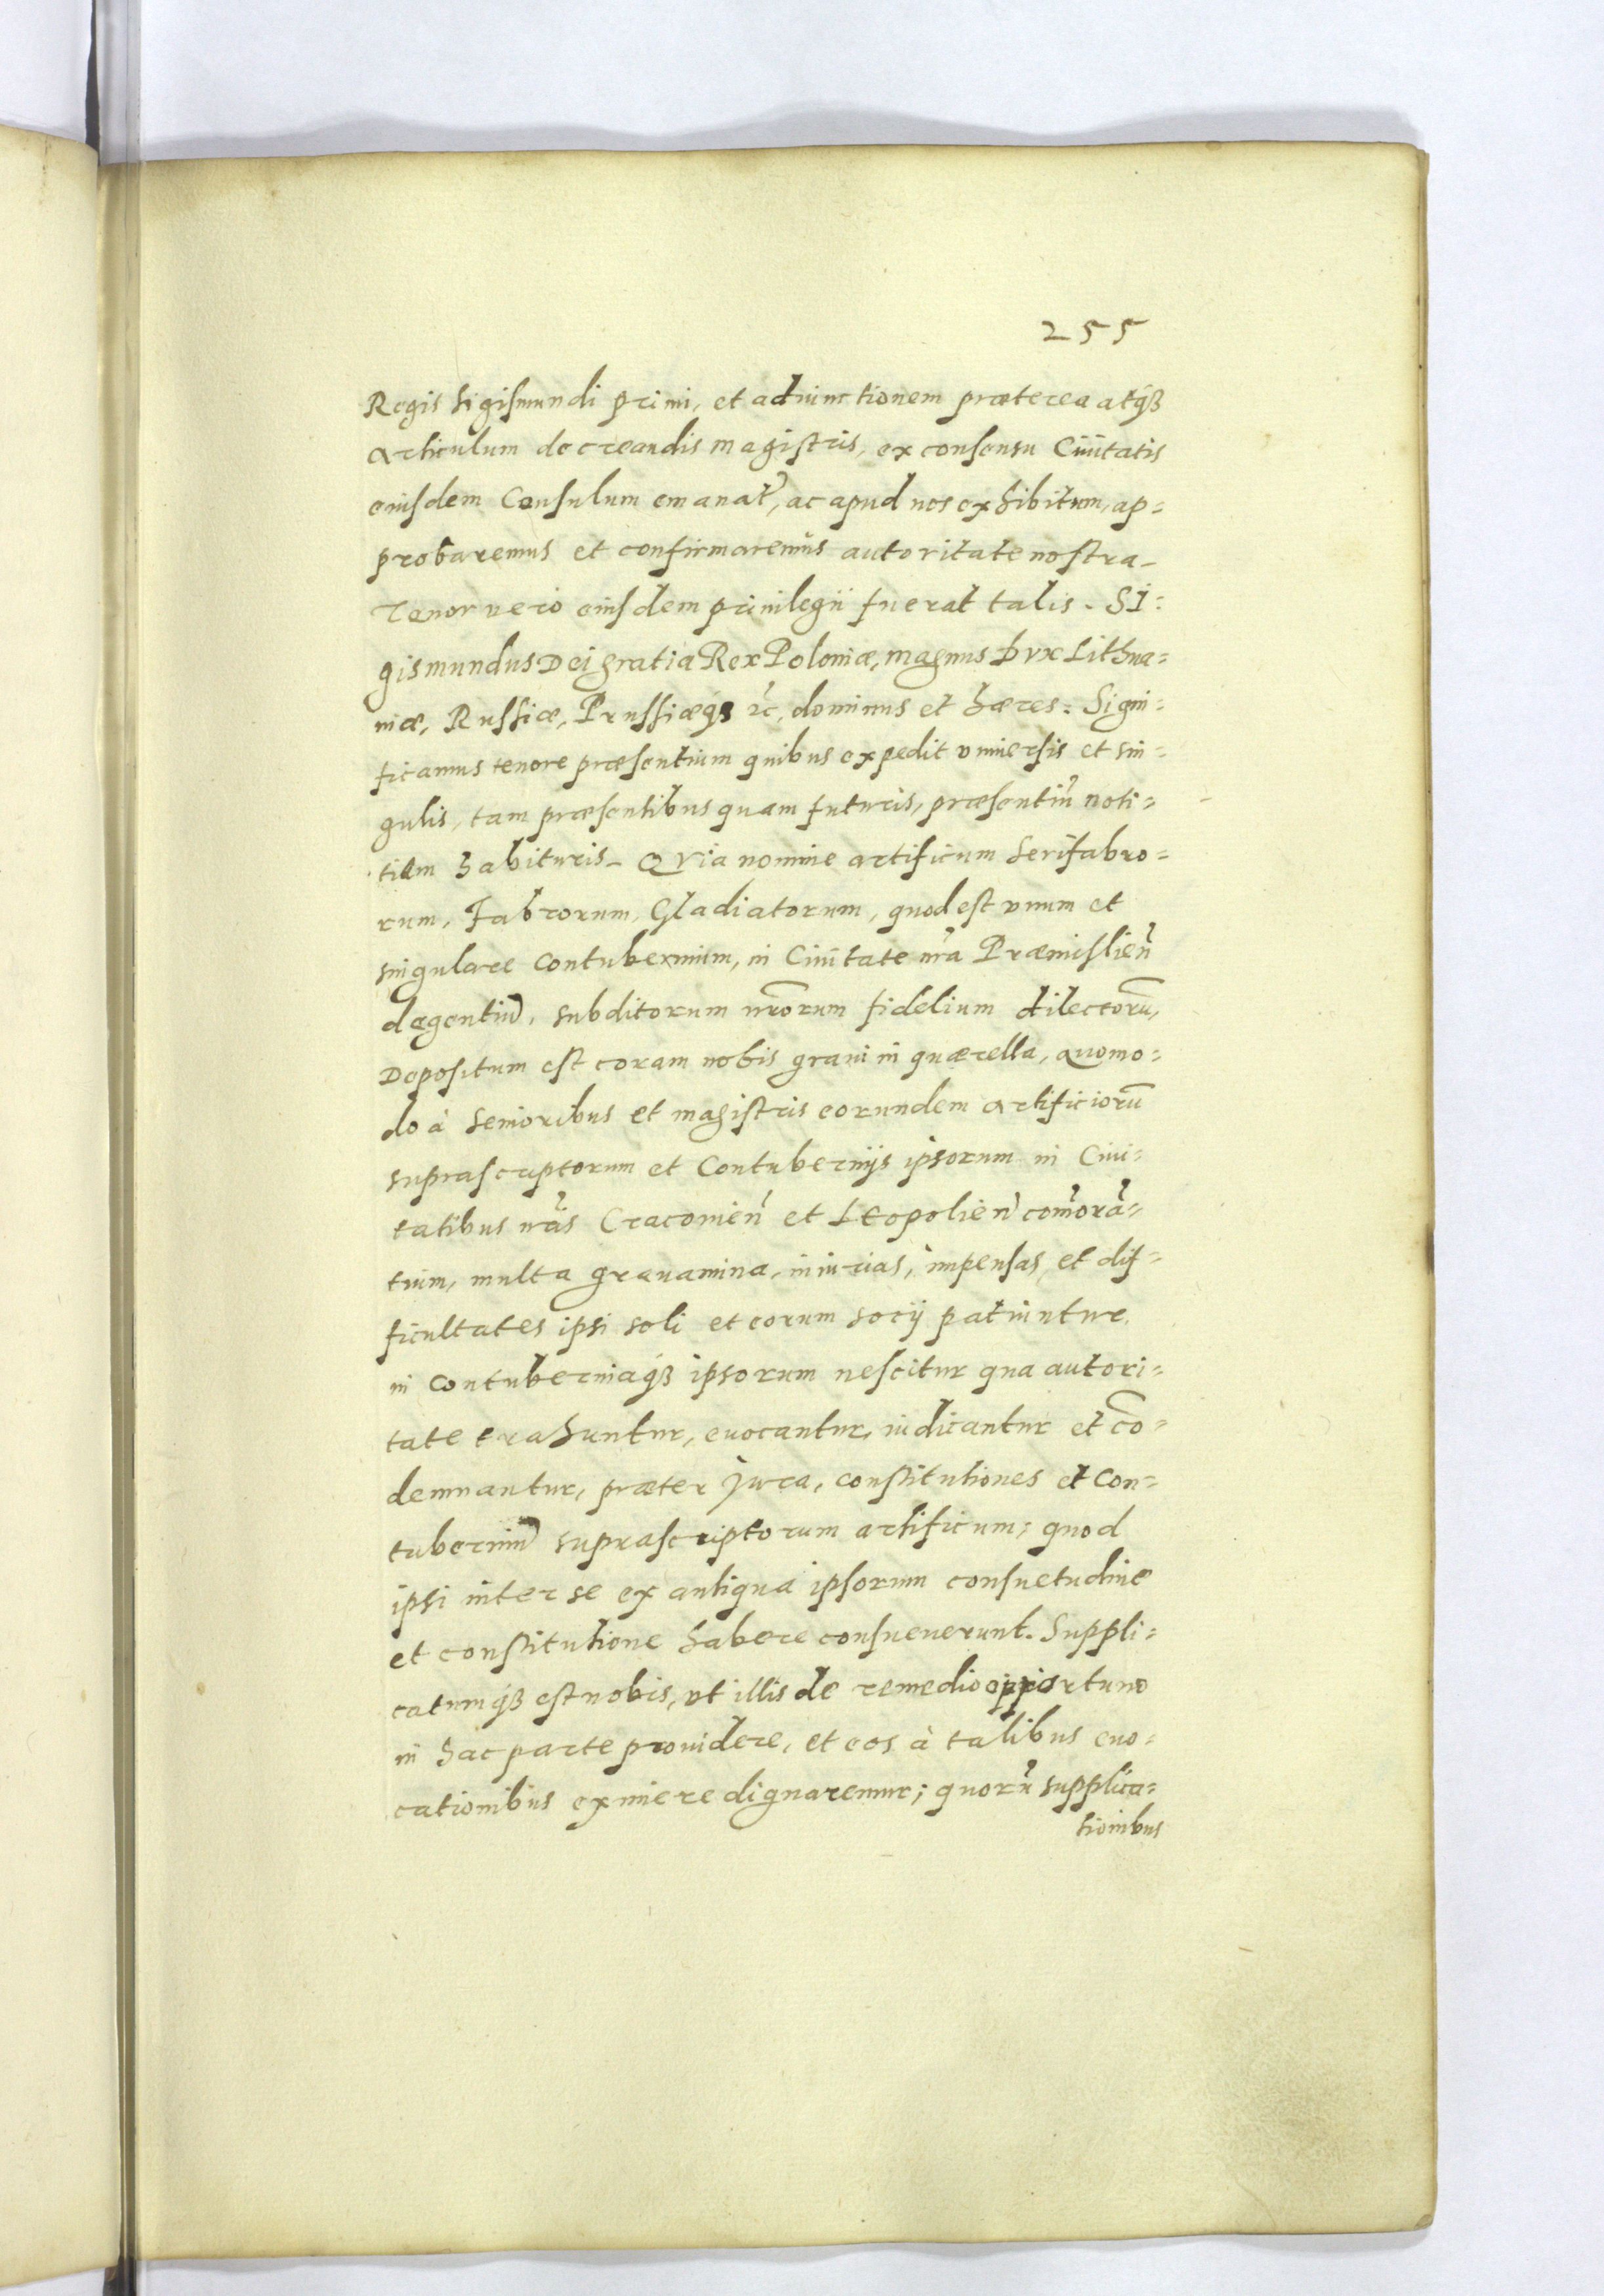 255
Regis Sigismundi primi, et adiunctionem præterea atq́ꝫ
articulum de creandis magistris, ex consensu Ciuitatis
eiusdem Consulum emanat̃, ac apud nos exhibitum, ap=
probaremus et confirmaremus autoritate nostra_
Tenor vero eiusdem priuilegii fuerat talis. SI=
gismundus Dei gratia Rex Poloniæ, magnus Dvx Lithua=
niæ, Russiæ, Prussiæq́ꝫ ꝛc̃, dominus et hæres. Signi=
ficamus tenore præsentium quibus expedit vniuersis et sin=
gulis, tam præsentibus quam futuris, præsentiũ noti=
tiam habituris_ Qvia nomine artificum Serifabro=
rum, Fabrorum, Gladiatorum, quod est vnum et
singulare contubernium, in Ciuitate nr̃a Præmislien̄
degentiũ, subditorum nr̃orum fidelium dilectorũ,
Depositum est coram nobis graui in quærella, quomo=
do à senioribus et magistris eorundem artificiorũ
suprascriptorum et Contubernijs ipsorum in Ciui=
tatibus nr̃is Cracouien̄ et Leopolien̄ com̃orã=
tium, multa grauamina, iniurias, impensas, et dif=
ficultates ipsi soli et eorum socij patiuntur,
in contuberniaq́ꝫ ipsorum nescitur qua autori=
tate trahuntur, euocantur, iudicantur et cõ=
demnantur, præter jura, constitutiones et con=
tuberniũ suprascriptorum artificum; quod
ipsi inter se ex antiqua ipsorum consuetudine
et constitutione habere consueuerunt. Suppli=
catumq́ꝫ est nobis, vt illis de remedio opportuno
in hac parte prouidere, et eos à talibus euo=
cationibus eximere dignaremur; quorũ supplica=
tionibus